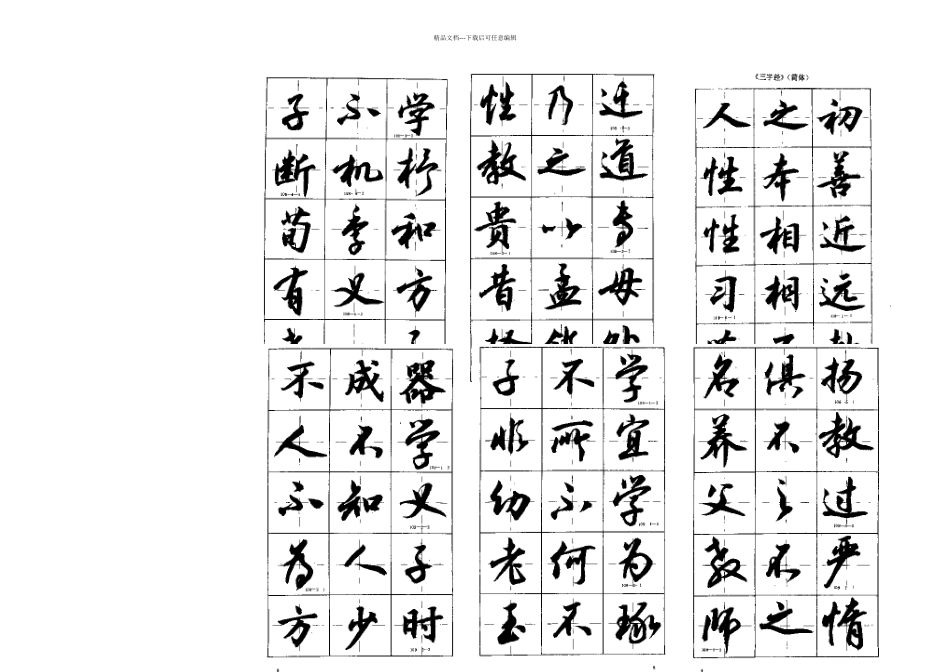 精品文档---下载后可任意编辑
《三字经》(简体)
人之初
性本善
性相近
习相远
性乃迁
教之道
貴以专
昔孟母
子不学
断机杼
荀季和
有义方
名俱扬
养不教
父之过
教不严
师之惰
子不学
非所宜
幼不学
老何为
玉不琢
不成器
人不学
不知义
為人子
方少时